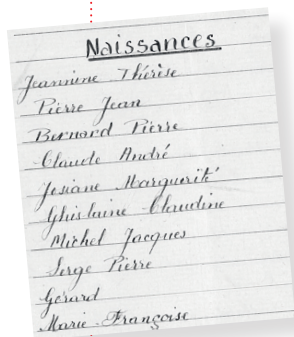 Naissances
Jeannine Thérèse
Pierre Jean
Bernard Pierre
Claude André
Josiane Marguerite
Ghislaine Claudine
Michel Jacques
Serge Pierre
Gérard
Marie-Françoise